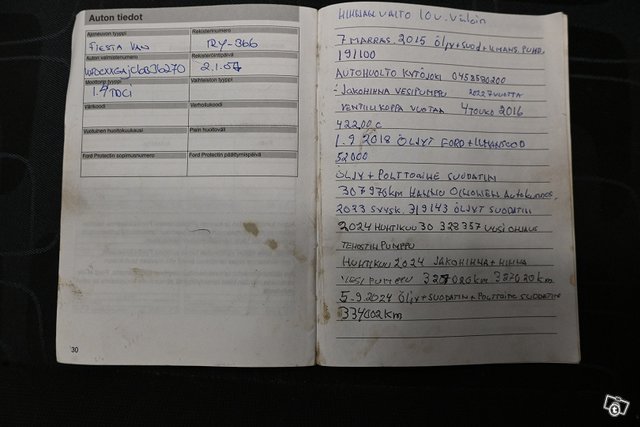 Auton tiedot
Ajoneuvon tyyppi
Rekisterinumero
FIESTA VAN
RY-366
Auton valmistenumero
Rekisteröintipäivä
2.1.04
Moottorin tyyppi
Vaihteiston tyyppi
1.4 TDCI
Värikoodi
Verhoilukoodi
Vuotuinen huoltokuukausi
Pien huoltoväli
Ford Protectin sopimusnumero
Ford Protectin päättymispäivä
30
HIHNAN VAITO 10 v. Välein
7 MARRAS. 2015 ÖLJY+SUOD+ILMANS. PUHD.
191100
AUTOHUOLTO KYTÖJOKI 0458590200
JAKOHIHNA VESIPUMPPU 2022 7 VUOTTA
VENTIILIKOPPA VUOTAA 4 TOUKO 2016
42200
1.9 2018 ÖLJYT FORD + ILMANSUOD
52000
ÖLJY + POLTTOAINE SUODATIN
307976km HANNU
2023 SYYSK. 319143 ÖLJYT SUODATIN
2024 HUHTIKUU 30 328357 UUSI OHJAUS
TEHOSTIN PUMPPU
HUHTIKUU 2024 JAKOHIHNA + HIHNA
VESI PUMPPU 327020km 327020km
5.9.2024 ÖLJY + SUODATIN + POLTTOAINE SUODATIN
334002 Km